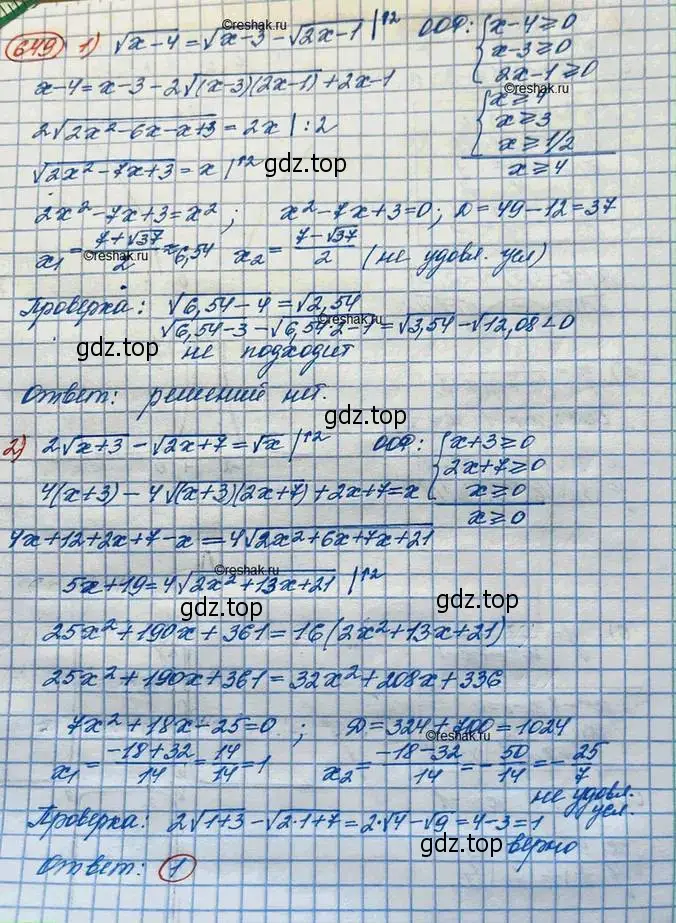 649 1) √x-4 = √x-3 - √2x-1 |↑2 ООФ: { x-4≥0
x-3≥0
2x-1≥0
x-4=x-3-2√(x-3)(2x-1)+2x-1
©reshak.ru
{ x≥4
x≥3
x≥1/2
x≥4
2√2x²-6x-x+3 = 2x |:2
√2x²-7x+3 = x |↑2
gdz.top
2x²-7x+3=x²; x²-7x+3=0; D=49-12=37
x₁ = 7+√37/2 ≈ 6,54 x₂ = 7-√37/2 (не удовл. усл)
©reshak.ru
Проверка: √6,54-4 = √2,54
√6,54-3 - √6,54·2-1 = √3,54 - √12,08 < 0
©reshak.ru
gdz.top не подходит
Ответ: решений нет.
gdz.top
2) 2√x+3 - √2x+7 = √x |↑2 ООФ: { x+3≥0
2x+7≥0
x≥0
x≥0
4(x+3)-4√(x+3)(2x+7)+2x+7=x
©reshak.ru
4x+12+2x+7-x=4√2x²+6x+7x+21
5x+19=4√2x²+13x+21 |↑2
©reshak.ru
gdz.top
gdz.top
25x²+190x+361=16(2x²+13x+21)
25x²+190x+361=32x²+208x+336
7x²+18x-25=0; D=324+700=1024
©reshak.ru
x₁ = -18+32/14 = 14/14 = 1 x₂ = -18-32/14 = -50/14 = -25/7
не удовл.
усл.
Проверка: 2√1+3 - √2·1+7 = 2·√4 - √9 = 4-3 = 1
gdz.top верно
Ответ: 1